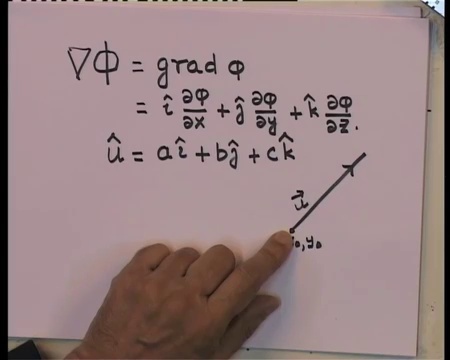 ∇Φ = grad φ
= î ∂φ/∂x + ĵ ∂φ/∂y + k̂ ∂φ/∂z.
û = aî + bĵ + ck̂
u⃗
₀, y₀